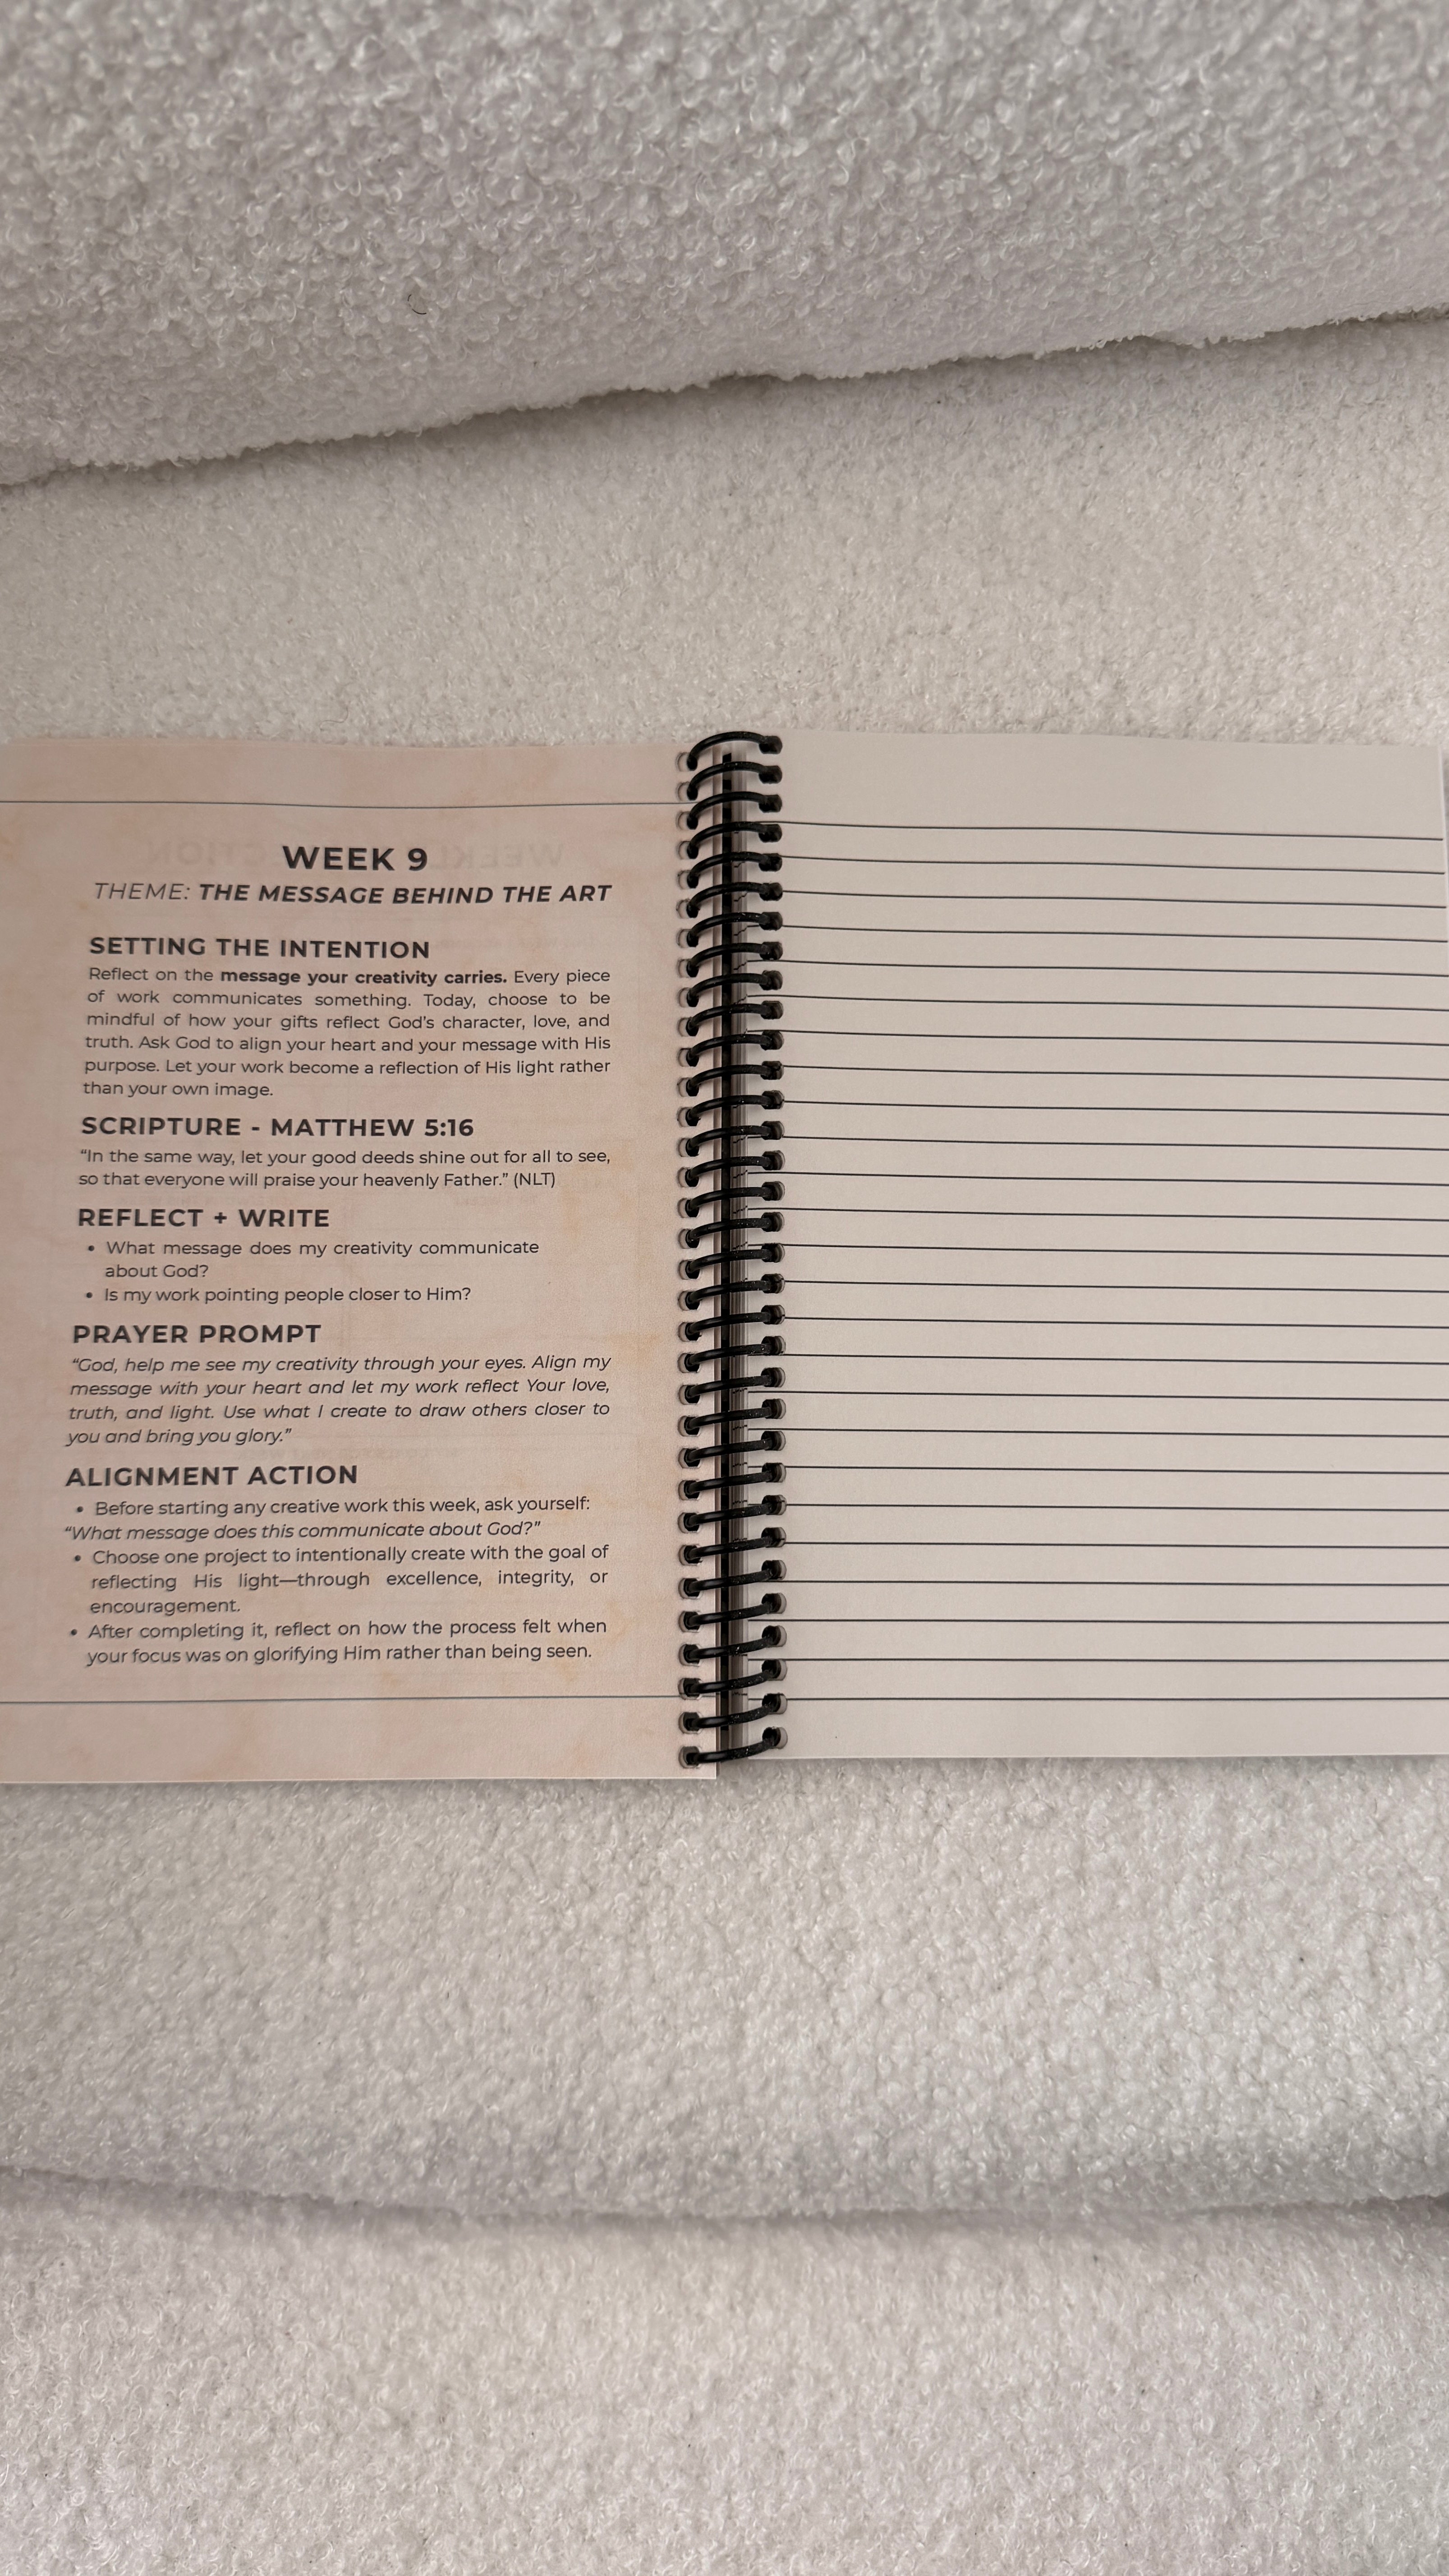 WEEK 9
THEME: THE MESSAGE BEHIND THE ART
SETTING THE INTENTION
Reflect on the message your creativity carries. Every piece
of work communicates something. Today, choose to be
mindful of how your gifts reflect God's character, love, and
truth. Ask God to align your heart and your message with His
purpose. Let your work become a reflection of His light rather
than your own image.
SCRIPTURE - MATTHEW 5:16
“In the same way, let your good deeds shine out for all to see,
so that everyone will praise your heavenly Father.” (NLT)
REFLECT + WRITE
• What message does my creativity communicate
about God?
• Is my work pointing people closer to Him?
PRAYER PROMPT
“God, help me see my creativity through your eyes. Align my
message with your heart and let my work reflect Your love,
truth, and light. Use what I create to draw others closer to
you and bring you glory.”
ALIGNMENT ACTION
• Before starting any creative work this week, ask yourself:
“What message does this communicate about God?”
• Choose one project to intentionally create with the goal of
reflecting His light—through excellence, integrity, or
encouragement.
• After completing it, reflect on how the process felt when
your focus was on glorifying Him rather than being seen.